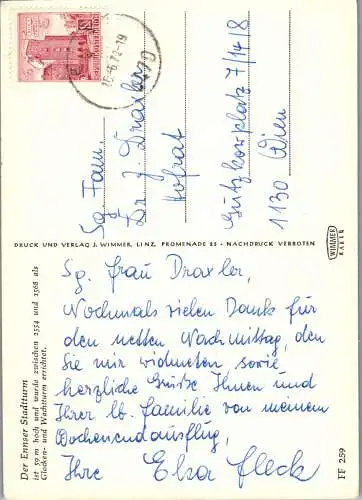 Sg. Fam.
Dr. J. Draxler
Hofrat
Gützkowplatz 7/14/8
1130 Wien
DRUCK UND VERLAG J. WIMMER, LINZ, PROMENADE 23 - NACHDRUCK VERBOTEN
WIMMER
KARTE
Sg. Frau Draxler,
Nochmals vielen Dank für
den netten Nachmittag, den
Sie mir widmeten, sowie
herzliche Grüße Ihnen und
Ihrer lb. Familie von meinem
Wochenendausflug,
Ihre Elsa Fleck
Der Ennser Stadtturm
ist 59 m hoch und wurde zwischen 1554 und 1568 als
Glocken- und Wachtturm errichtet.
FF 259